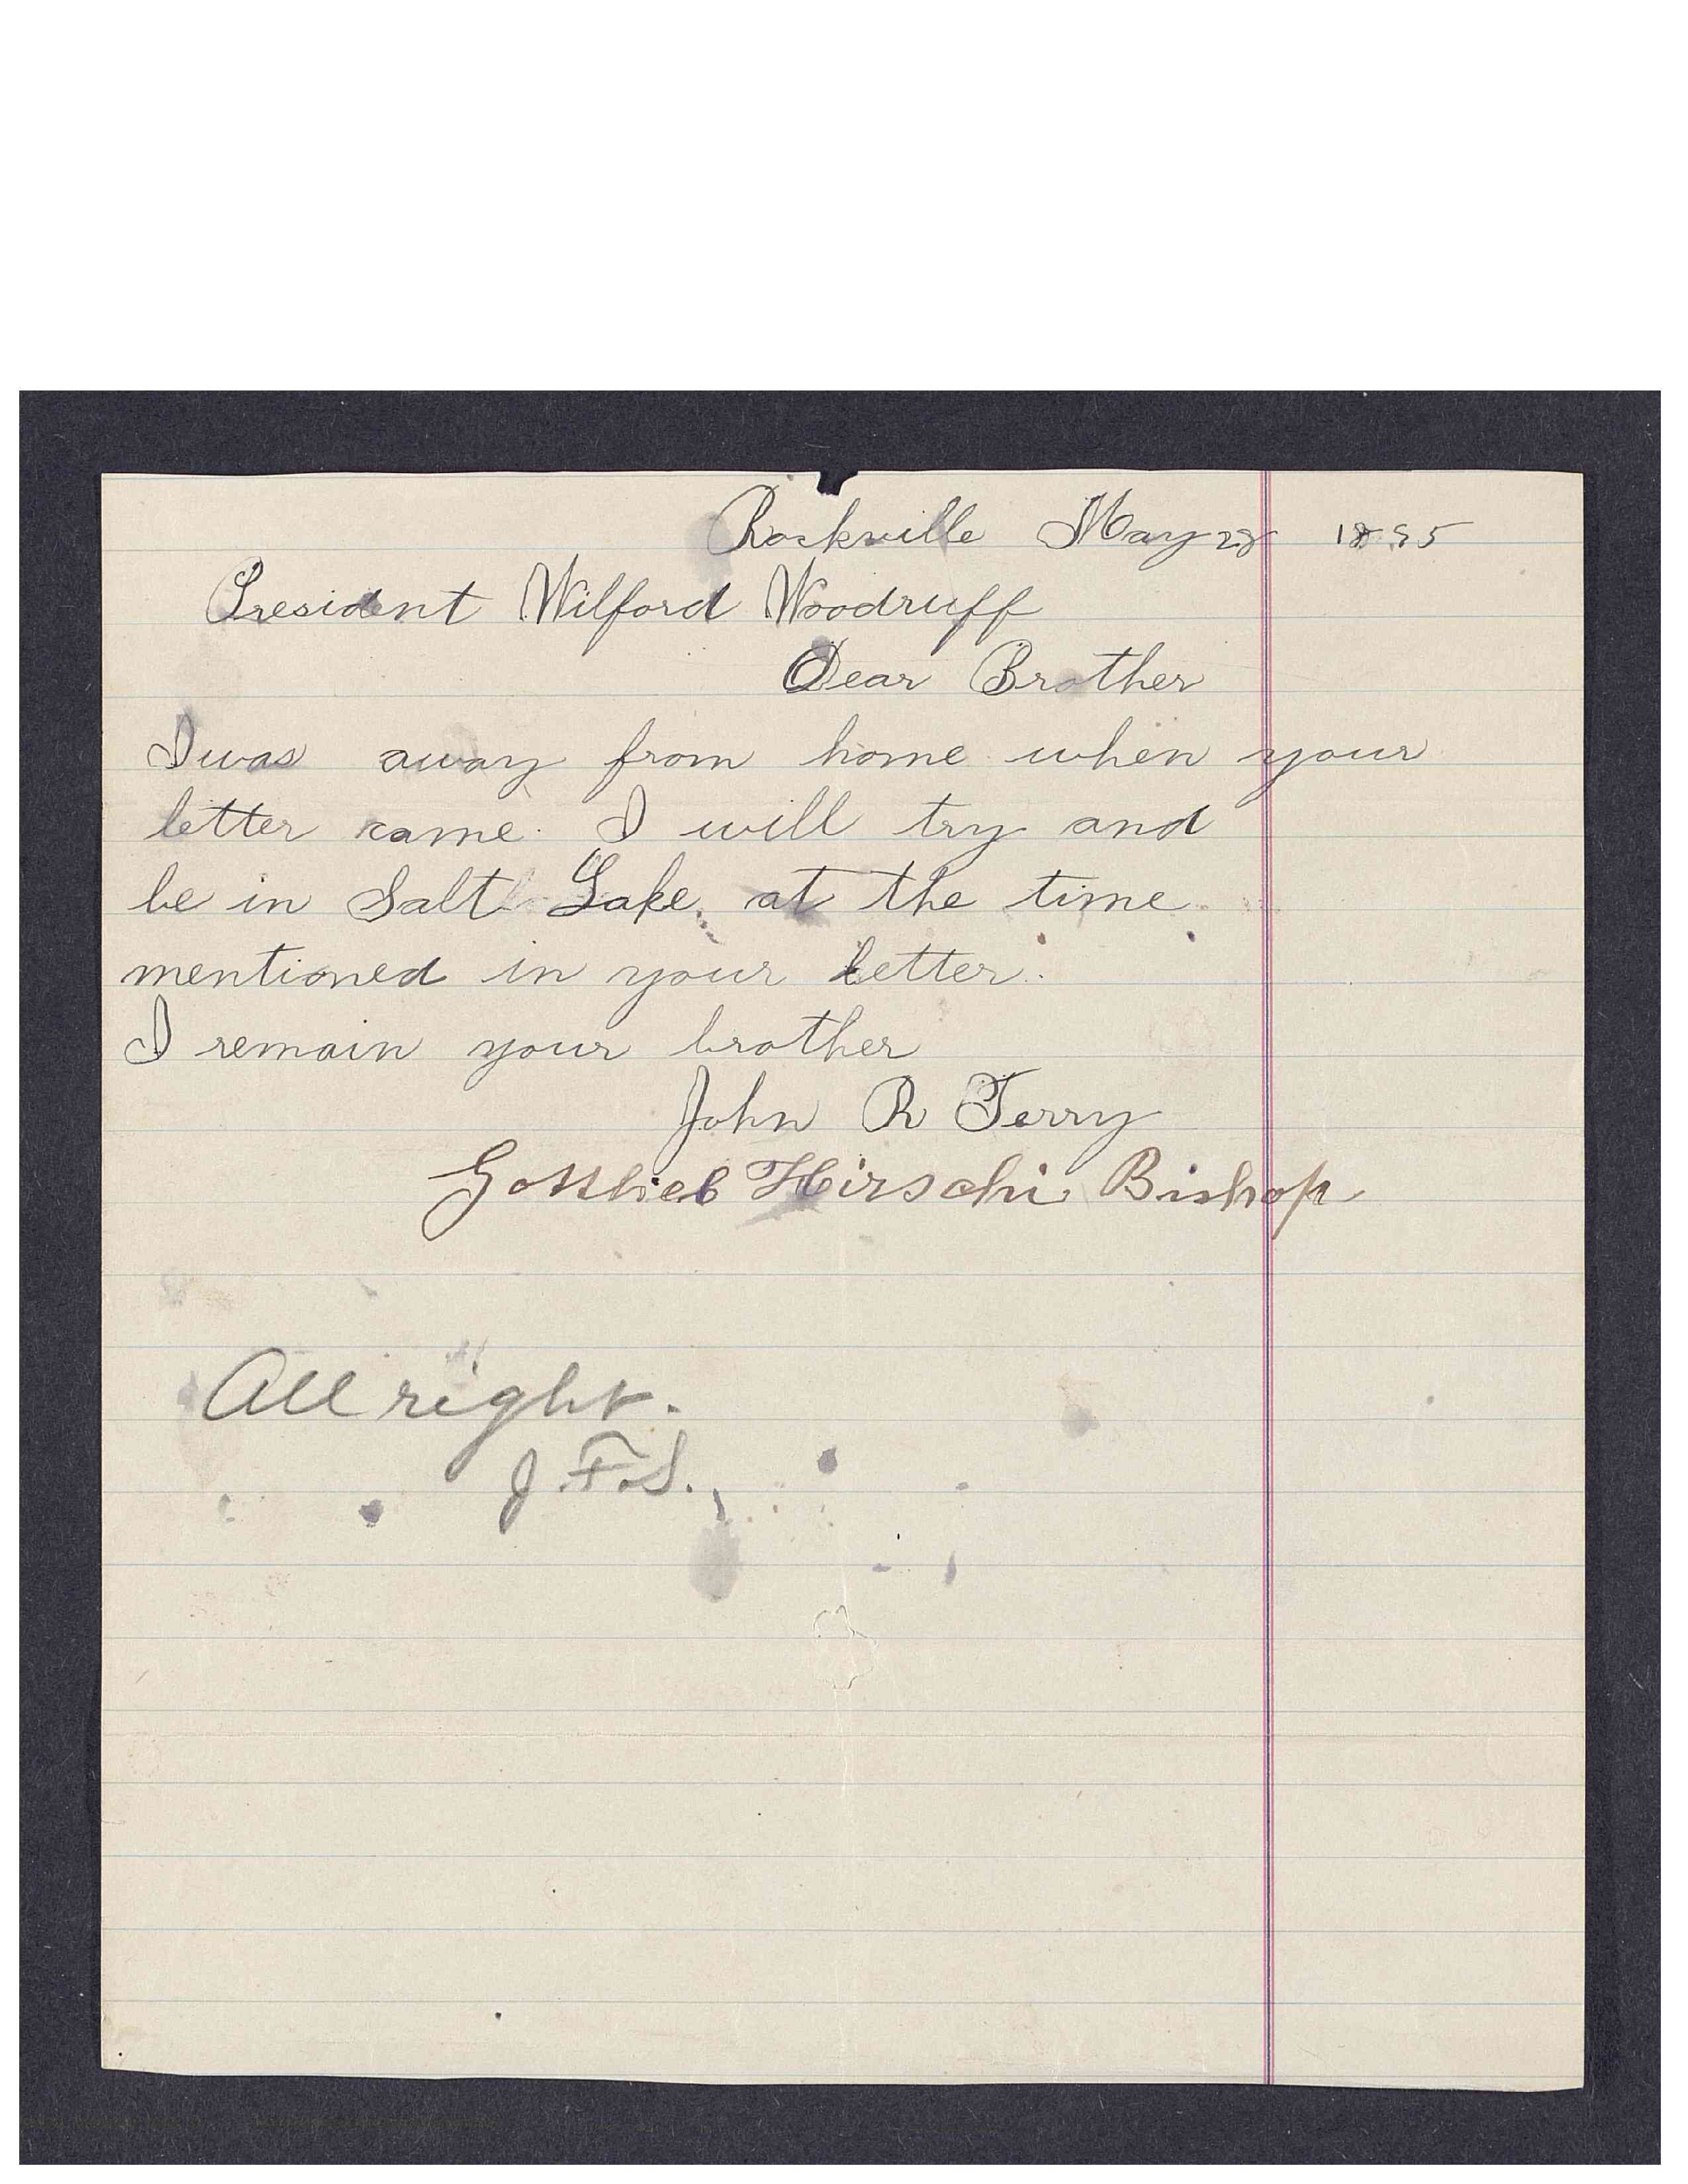 Rockville May 28 1895
President Wilford Woodruff
Dear Brother
I was away from home when your
letter came. I will try and
be in Salt Lake, at the time
mentioned in your letter.
I remain your brother
John R Terry
Gottlieb Hirschi Bishop
All right.
J.F.S.